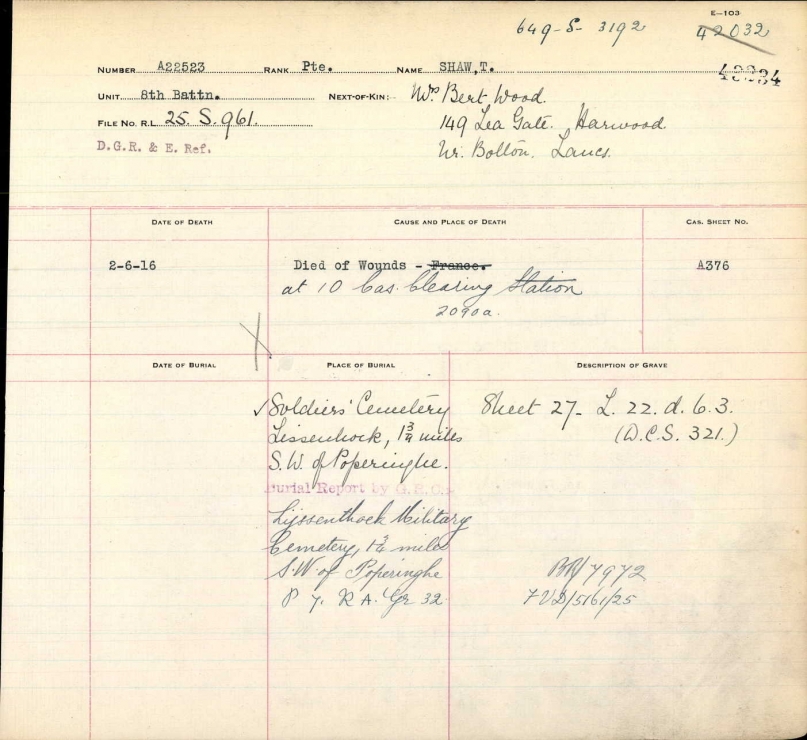 E—103
649-S-3192 42032
NUMBER A22523 RANK Pte. NAME SHAW,T.
UNIT 8th Battn. NEXT-OF-KIN: Mrs Bert Wood.
FILE NO. R.L. 25. S. 961. 149 Lea Gate. Harwood.
D.G.R. & E. Ref. Nr. Bolton. Lancs.
DATE OF DEATH CAUSE AND PLACE OF DEATH CAS. SHEET NO.
2-6-16 Died of Wounds - France. A376
at 10 Cas. Clearing Station
2090a.
DATE OF BURIAL PLACE OF BURIAL DESCRIPTION OF GRAVE
✓Soldiers' Cemetery Sheet 27- L. 22. d. 6. 3.
Lissenhock, 1¾ miles (D.C.S. 321.)
S.W. of Poperinghe.
Burial Report by G.R.O.
Lijssenthoek Military
Cemetery, 1¾ miles
S.W. of Poperinghe BR/7972
P 7. R A. Gr 32 FVD/5161/25